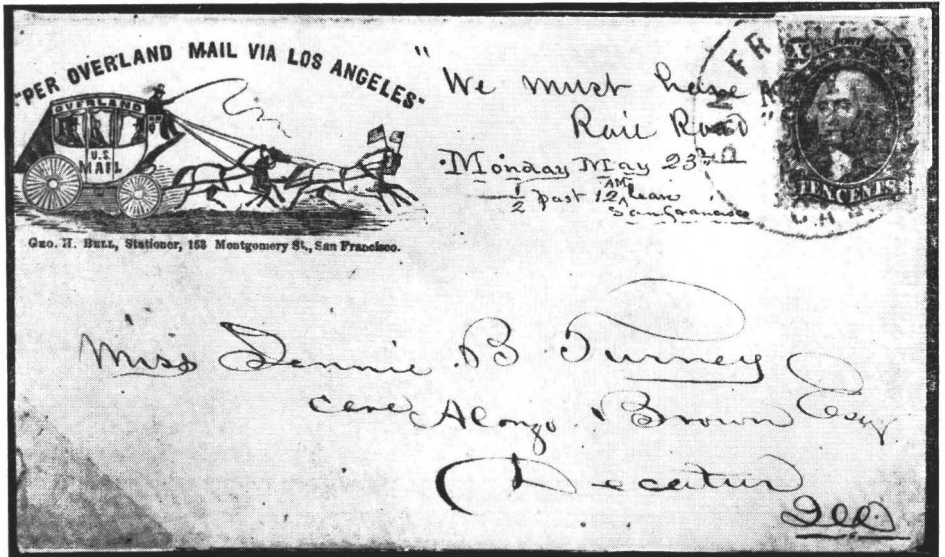 "PER OVERLAND MAIL VIA LOS ANGELES"
OVERLAND
U.S.
MAIL
GEO. H. BELL, Stationer, 153 Montgomery St., San Francisco.
"We must have a
Rail Road"
Monday May 23rd
1/2 past 12 AM leave
San Francisco
TEN CENTS
Miss Jennie B. Turney
care Alonzo Brown Esq
Decatur
Ill